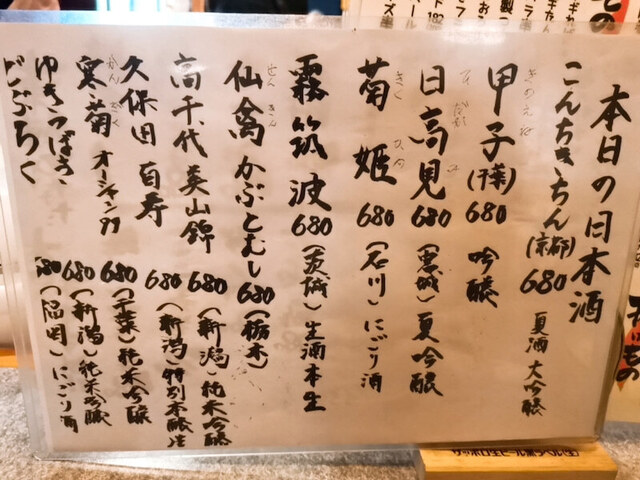 本日の日本酒
こんちきちん(京都)680 夏酒 大吟醸
きのえね
甲子(千葉)680 吟醸
ひだかみ
日高見680(宮城)夏吟醸
きくひめ
菊姫 680(石川)にごり酒
霧筑波680(茨城)生酒本生
せんきん
仙禽かぶとむし680(栃木)
高千代 美山錦 680(新潟)純米吟醸
久保田 百寿 680(新潟 特別本醸造
かんぎく
寒菊 オーシャン99 680(千葉)純米吟醸
ゆきつばき 680(新潟)純米吟醸
どぶろく 680(福岡)にごり酒
サッポロ生ビール黒ラベル(生)